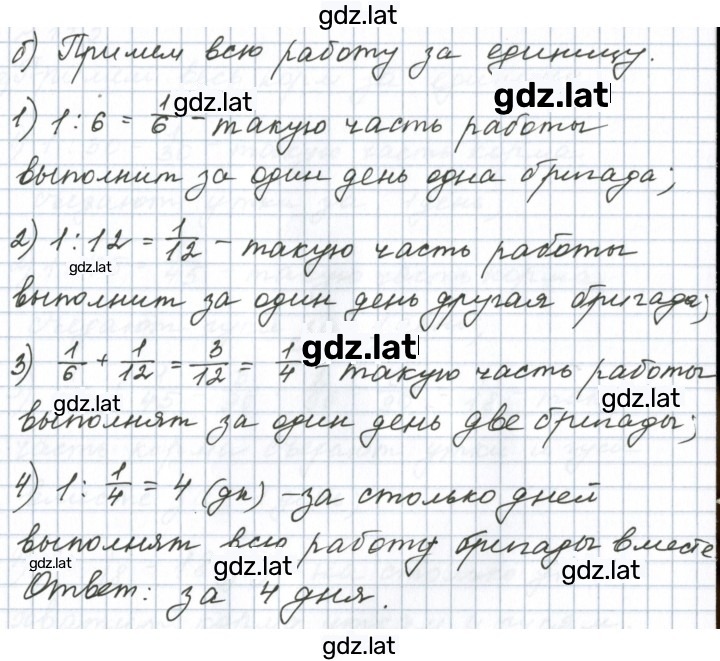 gdz.lat
б) Примем всю работу за единицу.
gdz.lat gdz.lat
1) 1 : 6 = 1/6 – такую часть работы
выполнит за один день одна бригада;
2) 1 : 12 = 1/12 – такую часть работы
gdz.lat
выполнит за один день другая бригада;
gdz.lat
3) 1/6 + 1/12 = 3/12 = 1/4 – такую часть работы
gdz.lat gdz.lat
выполнят за один день две бригады;
4) 1 : 1/4 = 4 (дн) – за столько дней
выполнят всю работу бригады вместе
gdz.lat gdz.lat gdz.lat
Ответ: за 4 дня.
gdz.lat